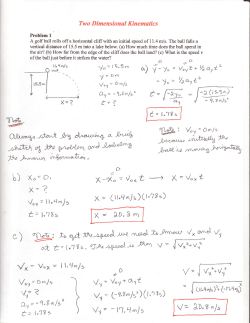 Two Dimensional Kinematics
Problem 1
A golf ball rolls off a horizontal cliff with an initial speed of 11.4 m/s. The ball falls a
vertical distance of 15.5 m into a lake below. (a) How much time does the ball spend in
the air? (b) How far from the edge of the cliff does the ball land? (c) What is the speed v
of the ball just before it strikes the water?
11.4m/s
15.5m
x = ?
y₀ = 15.5m
y = 0m
v₀y = 0m/s
ay = -9.8m/s²
t = ?
a) y - y₀ = v₀yt + ½ayt²
-y₀ = ½ayt²
t = √(-2y₀/ay) = √(-2(15.5m)/-9.8m/s²)
t = 1.78s
Note:
Always start by drawing a
sketch of the problem and labeling
the known information.
Note: v₀y = 0m/s
because initially the
ball is moving horizontally
b) x₀ = 0.
x = ?
v₀x = 11.4m/s
t = 1.78s
x - x₀ = v₀xt → x = v₀xt
x = (11.4m/s)(1.78s)
x = 20.3m
c) Note: to get the speed we need to know vx and vy
at t = 1.78s. The speed is then v = √(vx² + vy²)
vx = v₀x = 11.4m/s
v₀y = 0m/s
vy = ?
ay = -9.8m/s²
t = 1.78s
vy = v₀y + ayt
vy = (-9.8m/s²)(1.78s)
vy = -17.4m/s
v = √(vx² + vy²)
v = 20.8m/s